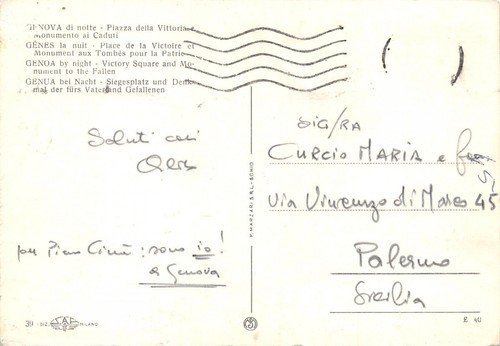 GENOVA di notte - Piazza della Vittoria e
monumento ai Caduti
GÊNES la nuit - Place de la Victoire et
Monument aux Tombés pour la Patrie
GENOA by night - Victory Square and Mo-
nument to the Fallen
GENUA bei Nacht - Siegesplatz und Denk-
mal der fürs Vaterland Gefallenen
Saluti cari
per Piero : sono io!
a Genova
39 - DIZ. SAF MILANO
F. MARZARI S.R.L. - SCHIO
SIG/RA
CURCIO MARIA e
Via Vincenzo di Marco 45
Palermo
Sicilia
£ 40